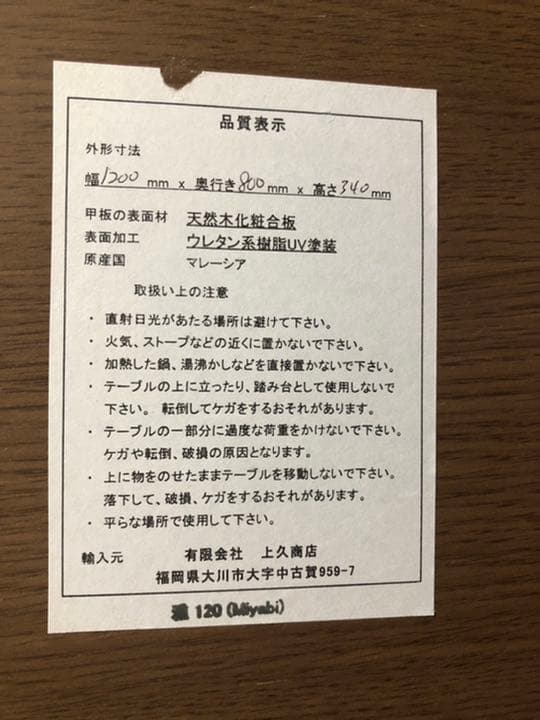 品質表示
外形寸法
幅1200 mm x 奥行き800mm x 高さ340mm
甲板の表面材 天然木化粧合板
表面加工 ウレタン系樹脂UV塗装
原産国 マレーシア
取扱い上の注意
・ 直射日光があたる場所は避けて下さい。
・ 火気、ストーブなどの近くに置かないで下さい。
・ 加熱した鍋、湯沸かしなどを直接置かないで下さい。
・ テーブルの上に立ったり、踏み台として使用しないで
下さい。 転倒してケガをするおそれがあります。
・ テーブルの一部分に過度な荷重をかけないで下さい。
ケガや転倒、破損の原因となります。
・ 上に物をのせたままテーブルを移動しないで下さい。
落下して、破損、ケガをするおそれがあります。
・ 平らな場所で使用して下さい。
輸入元 有限会社 上久商店
福岡県大川市大字中古賀959-7
雅 120 (Miyabi)